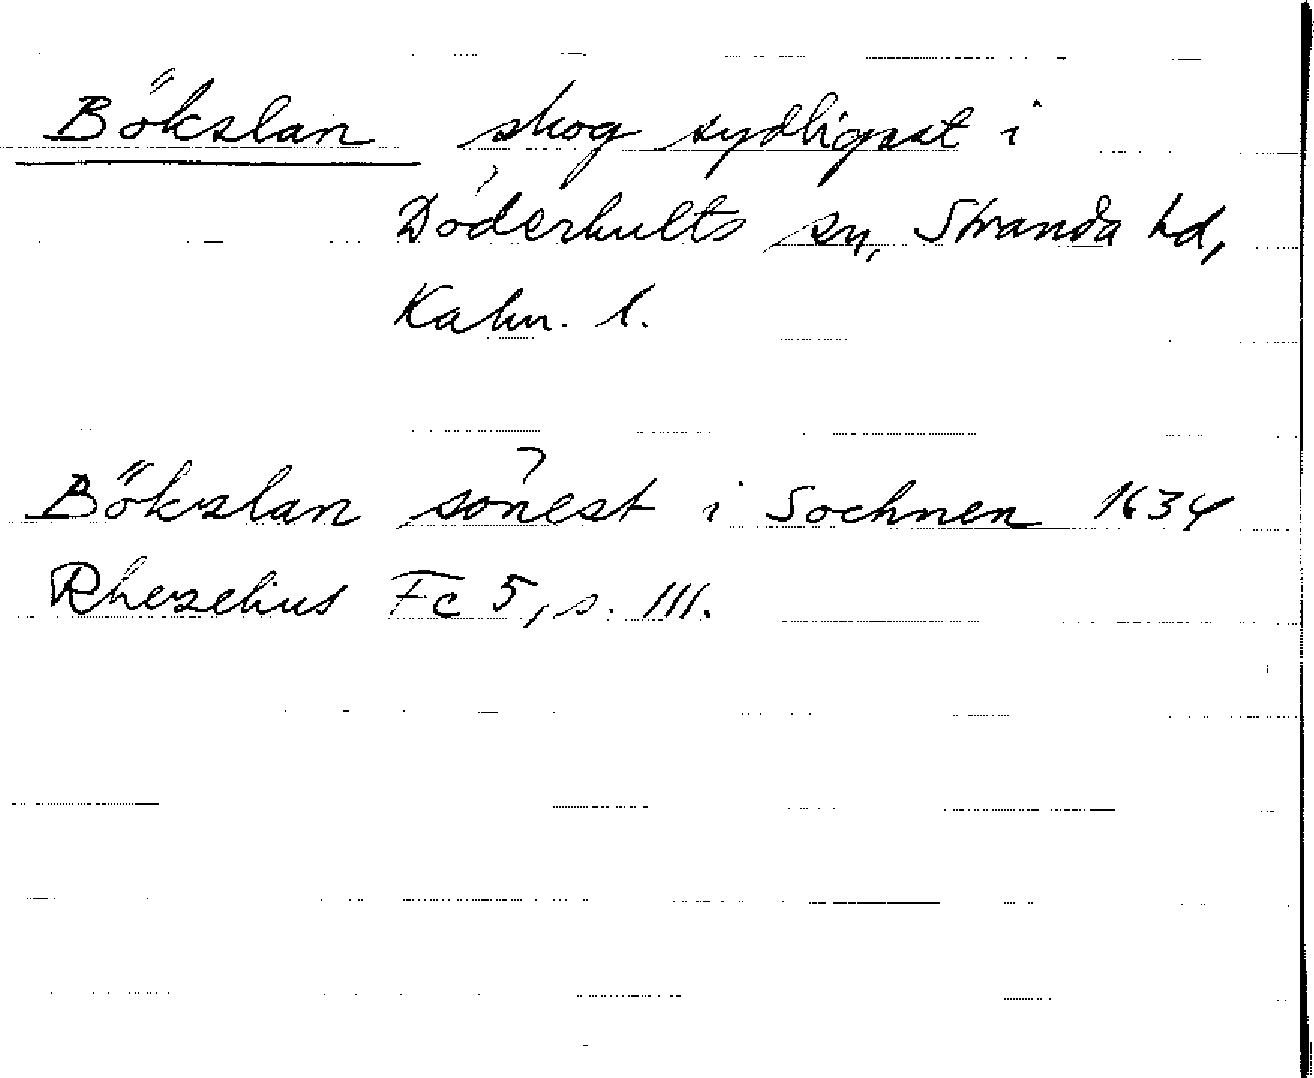 Bökslan skog sydligast i
Döderhults sn, Stranda hd,
Kalm. l.
Bökslan sönest i Sochnen 1634
Rhezelius Fc 5, s. 111.